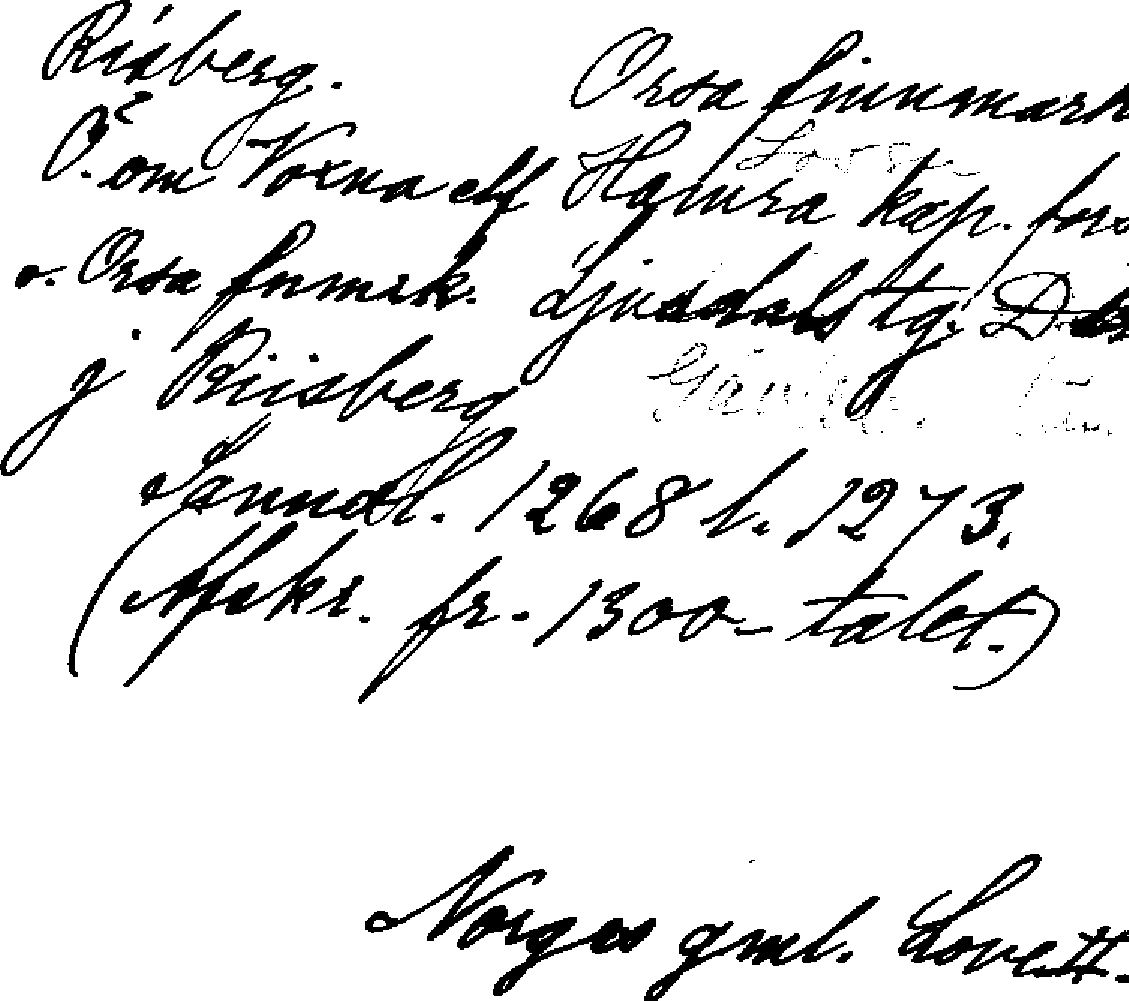 Risberg. Orsa finnmark
Ö. om Voxna elf Hamra kap. förs
o. Orsa finmrk. Ljusdals tg.
j Riisberg Gävle
Jämndl. 1268 l. 1273.
(Afskr. fr. 1300-talet.)
Norges gml. Love II.